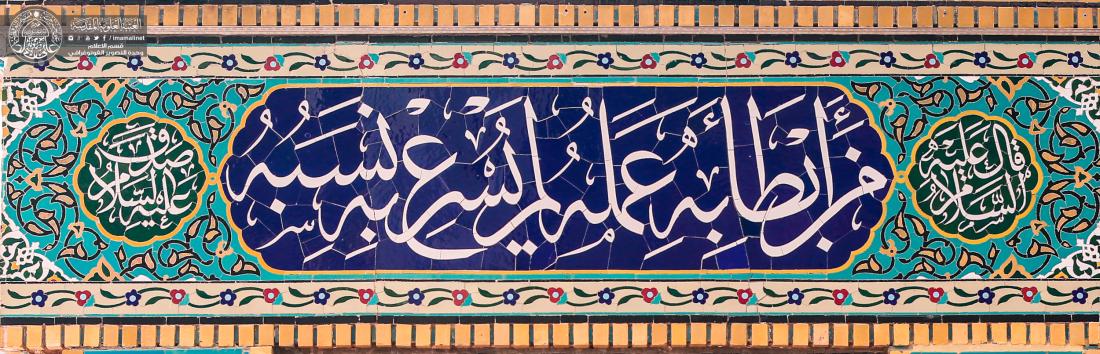 العتبة العلوية المقدسة
/ imamalinet
قسم الاعلام
وحدة التصوير الفوتوغرافي
قال عليه السلام
من أبطأ به عمله لم يسرع به نسبه
صدق عليه السلام